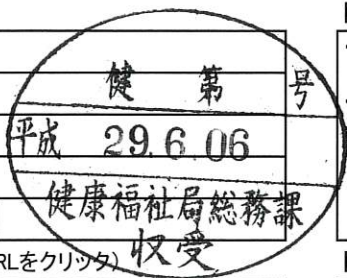 健 第 号
平成 29.6.06
健康福祉局総務課
収受
RLをクリック)